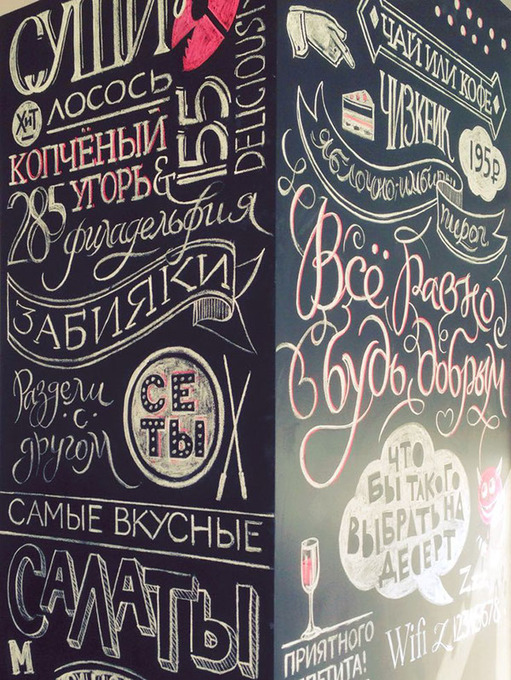 СУШИ
DELICIOUS
ХИТ
ЛОСОСЬ
155
КОПЧЁНЫЙ
УГОРЬ &
285
филадельфия
ЗАБИЯКИ
Раздели
с
другом
СЕ
ТЫ
САМЫЕ ВКУСНЫЕ
САЛАТЫ
М
ЧАЙ ИЛИ КОФЕ
ЧИЗКЕЙК
195₽
ЯБЛОЧНО-ИМБИРН
пирог
Всё равно
будь добрым
ЧТО
БЫ ТАКОГО
ВЫБРАТЬ НА
ДЕСЕРТ
ПРИЯТНОГО
ПЕТИТА!
Wifi